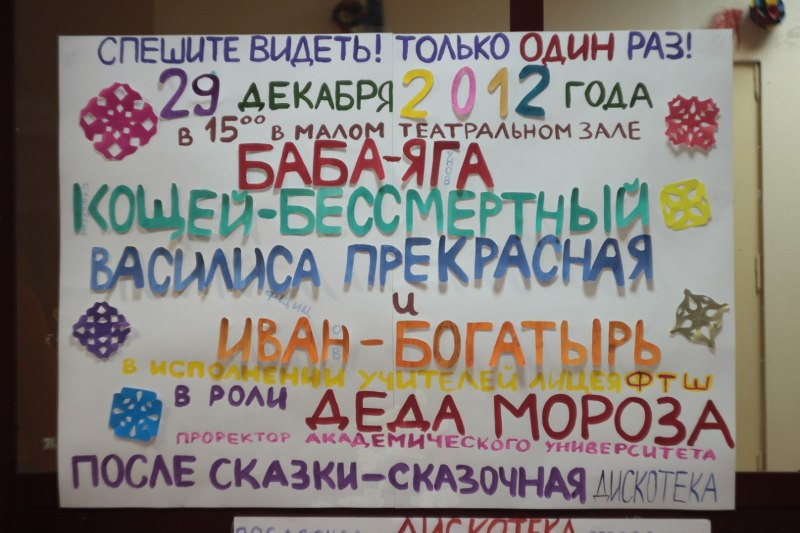 СПЕШИТЕ ВИДЕТЬ! ТОЛЬКО ОДИН РАЗ!
29 ДЕКАБРЯ 2012 ГОДА
В 15⁰⁰ В МАЛОМ ТЕАТРАЛЬНОМ ЗАЛЕ
БАБА-ЯГА
КОЩЕЙ-БЕССМЕРТНЫЙ
ВАСИЛИСА ПРЕКРАСНАЯ
И
ИВАН-БОГАТЫРЬ
В ИСПОЛНЕНИИ УЧИТЕЛЕЙ ЛИЦЕЯ ФТШ
В РОЛИ ДЕДА МОРОЗА
ПРОРЕКТОР АКАДЕМИЧЕСКОГО УНИВЕРСИТЕТА
ПОСЛЕ СКАЗКИ-СКАЗОЧНАЯ ДИСКОТЕКА
ДИСКОТЕКА